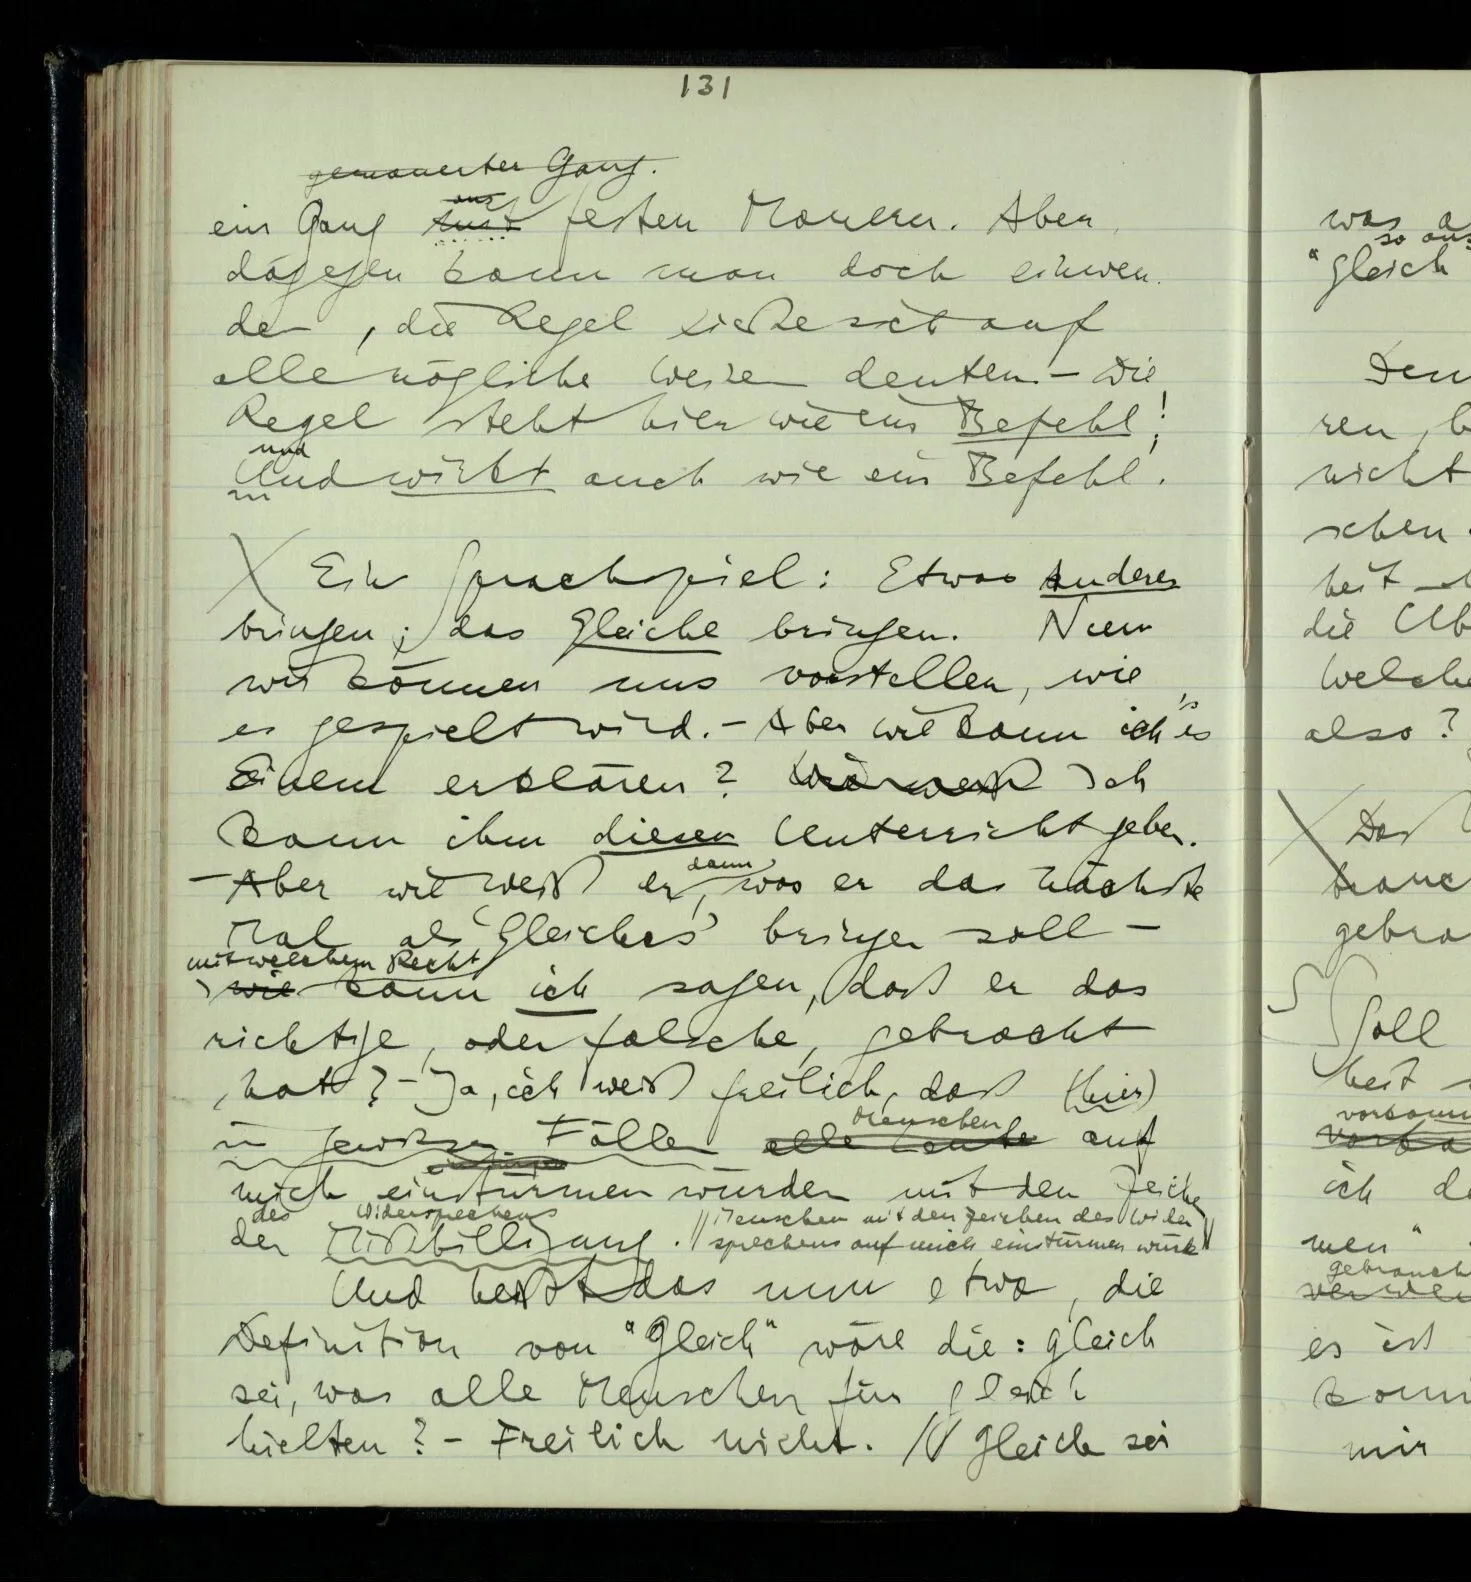 131
gemauerter Gang.
aus
ein Gang mit festen Mauern. Aber
dagegen kann man doch einwen-
den, die Regel ließe sich auf
alle mögliche Weisen deuten. – Die
Regel steht hier wie ein Befehl!
und
Und wirkt auch wie ein Befehl.
Ein Sprachspiel: Etwas Anderes
bringen; das Gleiche bringen. Nun
wir können uns vorstellen, wie
es gespielt wird. – Aber wie kann ich's
Einem erklären? Ich
kann ihm diesen Unterricht geben.
dann
– Aber wie weiß er, was er das nächste
Mal als 'Gleiches' bringen soll –
mit welchem Recht
wie kann ich sagen, daß er das
richtige, oder falsche, gebracht
hat? – Ja, ich weiß freilich, daß (hier)
Menschen
in gewissen Fällen alle Leute auf
mich einstürmen würden mit den Zeichen
des Widersprechens
der Mißbilligung. // Menschen mit den Zeichen des Wider
sprechens auf mich einstürmen würd //
Und heißt das nun etwa, die
Definition von "Gleich" wäre die: gleich
sei, was alle Menschen für gleich
hielten? – Freilich nicht. // Gleich sei
was
so
"gleich"
ren, b
nicht
schen
heit
die Üb
Welche
also?
Das
brauc
gebra
Soll
heit
vorkomm
ich d
men"
gebrauch
es ist
komm
mir